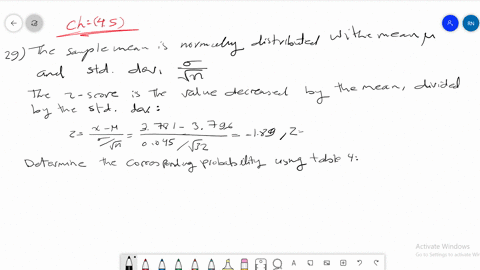 Ch=(4.5)
29) The sample mean is normally distributed with mean μ
and std. dev. σ/√n
The z-score is the value decreased by the mean, divided
by the std. dev:
z = x-μ / σ/√n = 3.781 - 3.796 / 0.045/√32 = -1.89, Z=
Determine the corresponding probability using table 4:
RN
Activate Windows
Go to Settings to activate Windows.